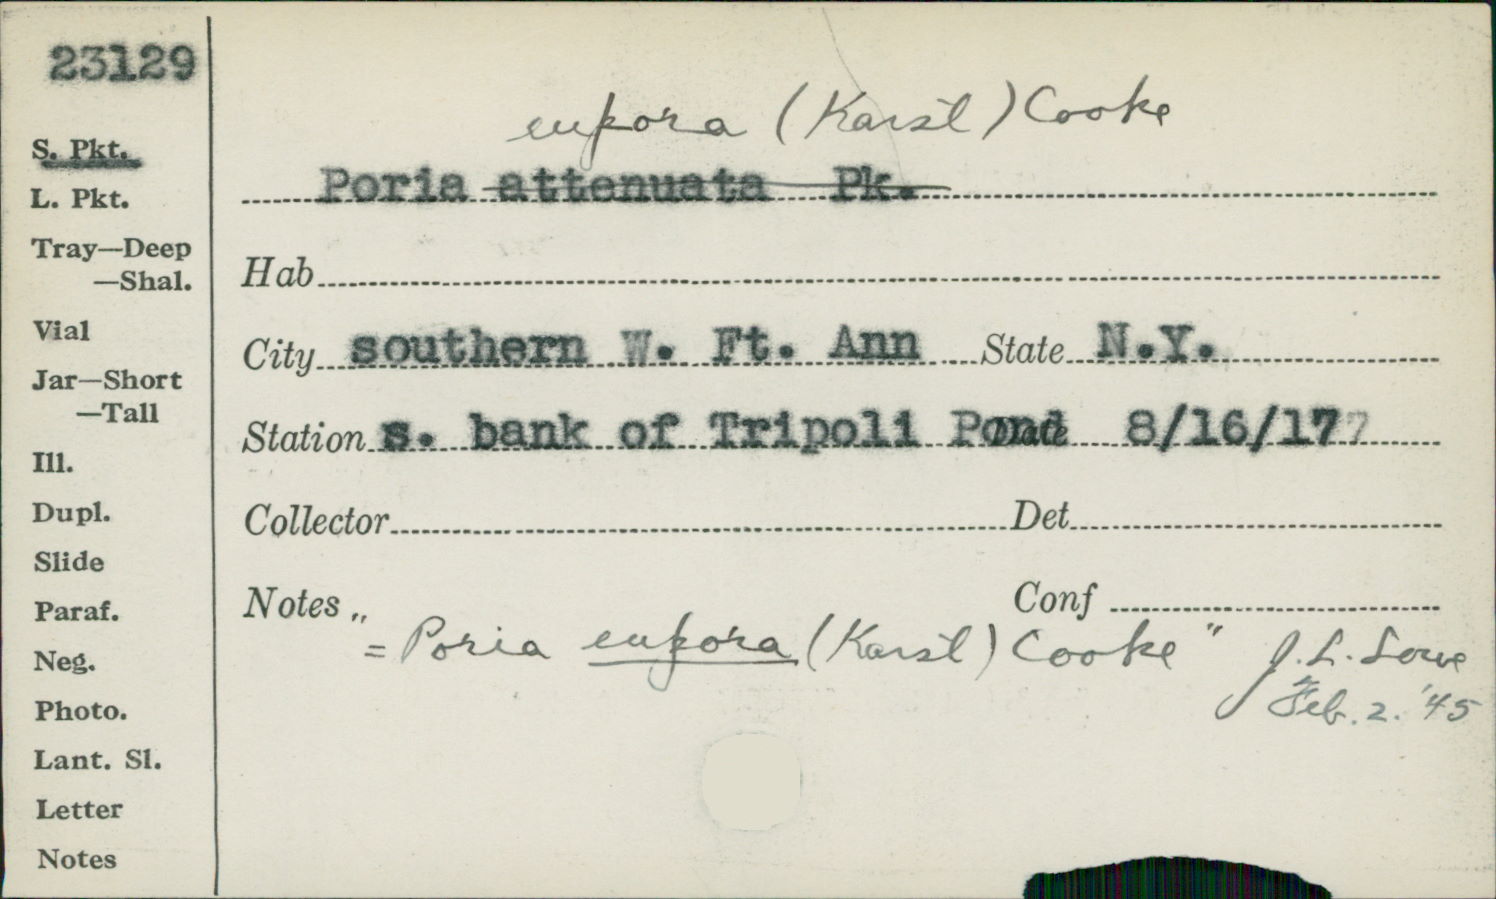 23129
S. Pkt.
L. Pkt.
Tray—Deep
—Shal.
Vial
Jar—Short
—Tall
Ill.
Dupl.
Slide
Paraf.
Neg.
Photo.
Lant. Sl.
Letter
Notes
eupora (Karst) Cooke
Poria attenuata Pk.
Hab
City southern W. Ft. Ann State N.Y.
Station s. bank of Tripoli Pond Date 8/16/17
Collector Det
Notes Conf
"= Poria eupora (Karst) Cooke" J. L. Lowe
Feb. 2. '45